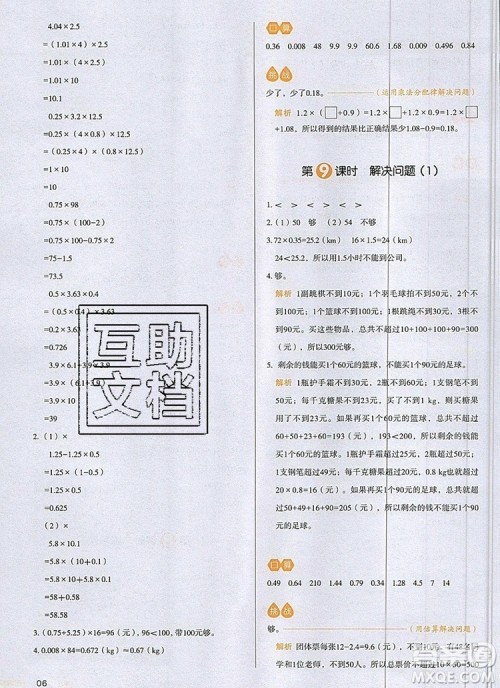 4.04×2.5
=(1.01×4)×2.5
=1.01×(4×2.5)
=1.01×10
=10.1
0.25×32×12.5
=0.25×(4×8)×12.5
=(0.25×4)×(8×12.5)
=1×100
=100
0.75×98
=0.75×(100-2)
=0.75×100-0.75×2
=75-1.5
=73.5
0.5×3.63×0.4
=(0.5×0.4)×3.63
=0.2×3.63
=0.726
3.9×9.9+3.9×0.1
=3.9×(9.9+0.1)
=3.9×10
=39
2.(1)×
1.25-1.25×0.5
=1.25×(1-0.5)
=1.25×0.5
=0.625
(2)×
5.8×10.1
=5.8×(10+0.1)
=5.8×10+5.8×0.1
=58+0.58
=58.58
3.(0.75+5.25)×16=96(元),96<100,带100元够。
4.0.008×84=0.672(kg) 0.672(kg)<0.7(kg)
06
口算
0.36 0.008 48 9.9 9.9 60.6 1.68 0.003 0.496 0.84
挑战
少了,少了0.18。(运用乘法分配律解决问题)
解析 1.2×(□+0.9)=1.2×□+1.2×0.9=1.2×□
+1.08,所以得到的结果比正确结果少1.08-0.9=0.18。
第9课时 解决问题(1)
1.< > < >
2.(1)50 够 (2)54 不够
3.72×0.35=25.2(km) 16×1.5=24(km)
24<25.2,所以用1.5小时不能行完全程。
4.够。
解析 1副跳棋不到10元;1个羽毛球拍不到50元,2个
不到100元;1个篮球不到100元;1根跳绳不到30元,3根
不到90元。买这些物品,总共不超过10+100+100+90
=300(元),所以300元够。
5.剩余的钱能买1个60元的篮球,不能买1个90元的足球。
解析 1瓶护手霜不到50元,2瓶不到100元;1支钢笔不到50
元;每千克糖果不到60元,0.8kg不到60元。总共不超过
60+50+60+23=193(元),193<200,所以剩余的钱能
买1个60元的篮球。1瓶护手霜超过25元,2瓶超过50元;
1支钢笔超过49元;每千克糖果超过50元,0.8 kg超过
40元。买1个90元的足球,总价超过
50+49+40+90=229(元),所以剩余的钱不能买1个90元
的足球。
口算
0.49 0.64 210 144 1.24 0.38 1.4 4.5 7 14
挑战
够。(用估算解决问题)
解析 团体票每张12-2.4=9.6(元),不到10元。有48名同
学和1位老师,不到50人。所以总票价不超过
互助
文档